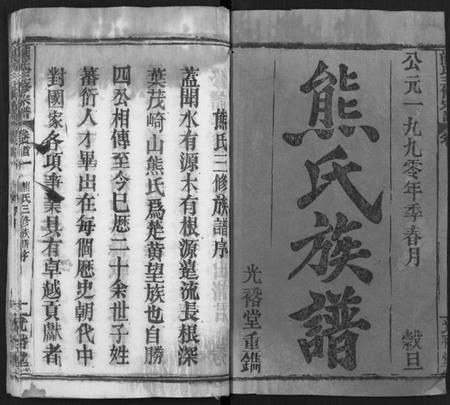 公元一九九零年季春月 穀旦
熊氏族譜
光裕堂重鐫
熊氏三修族譜序
蓋聞水有源木有根源遠流長根深
葉茂崎山熊氏爲楚黃望族也自勝
四公相傳至今已歷二十余世子姓
蕃衍人才畢出在每個歷史朝代中
對國家各項事業具有卓越貢獻者
卷首
熊氏三修族譜序
光裕堂